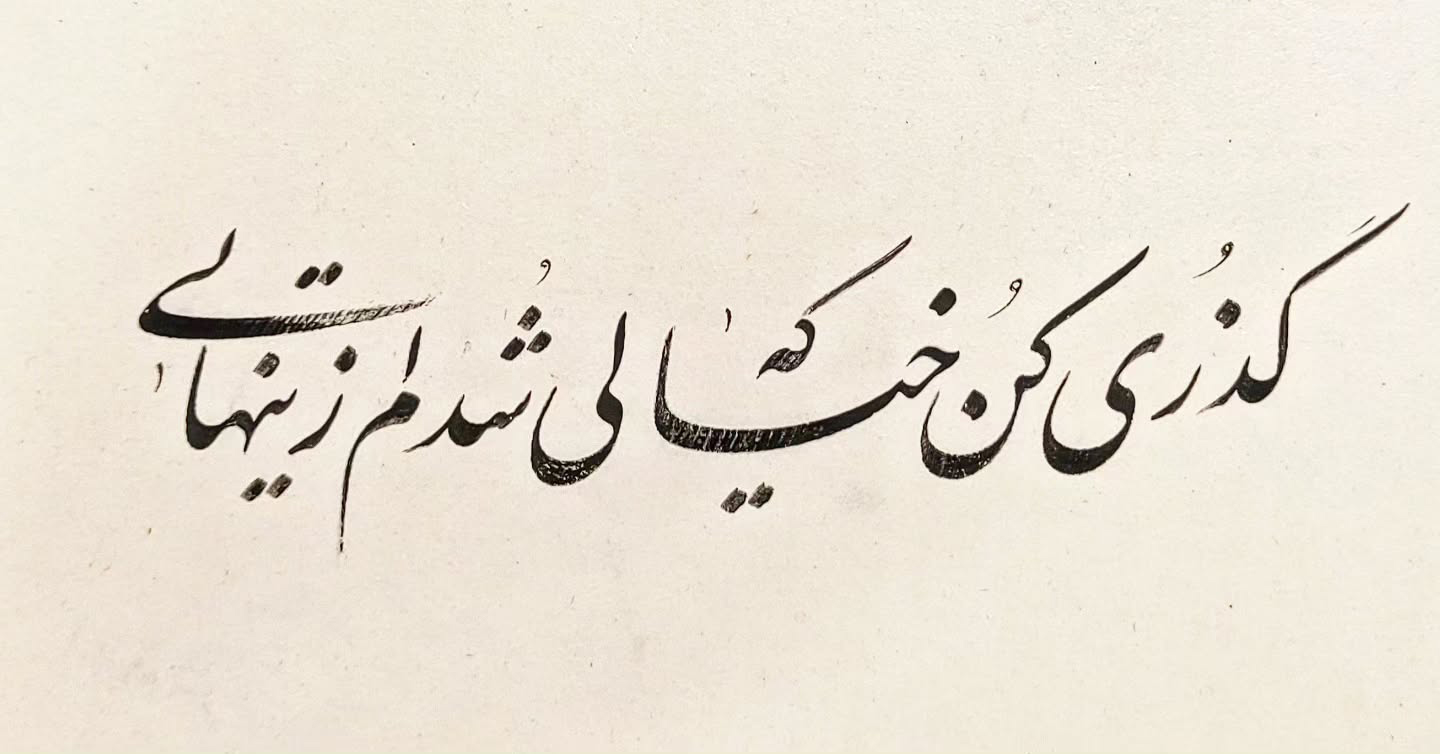 گذری کن که خیالی شدم از تنهایی